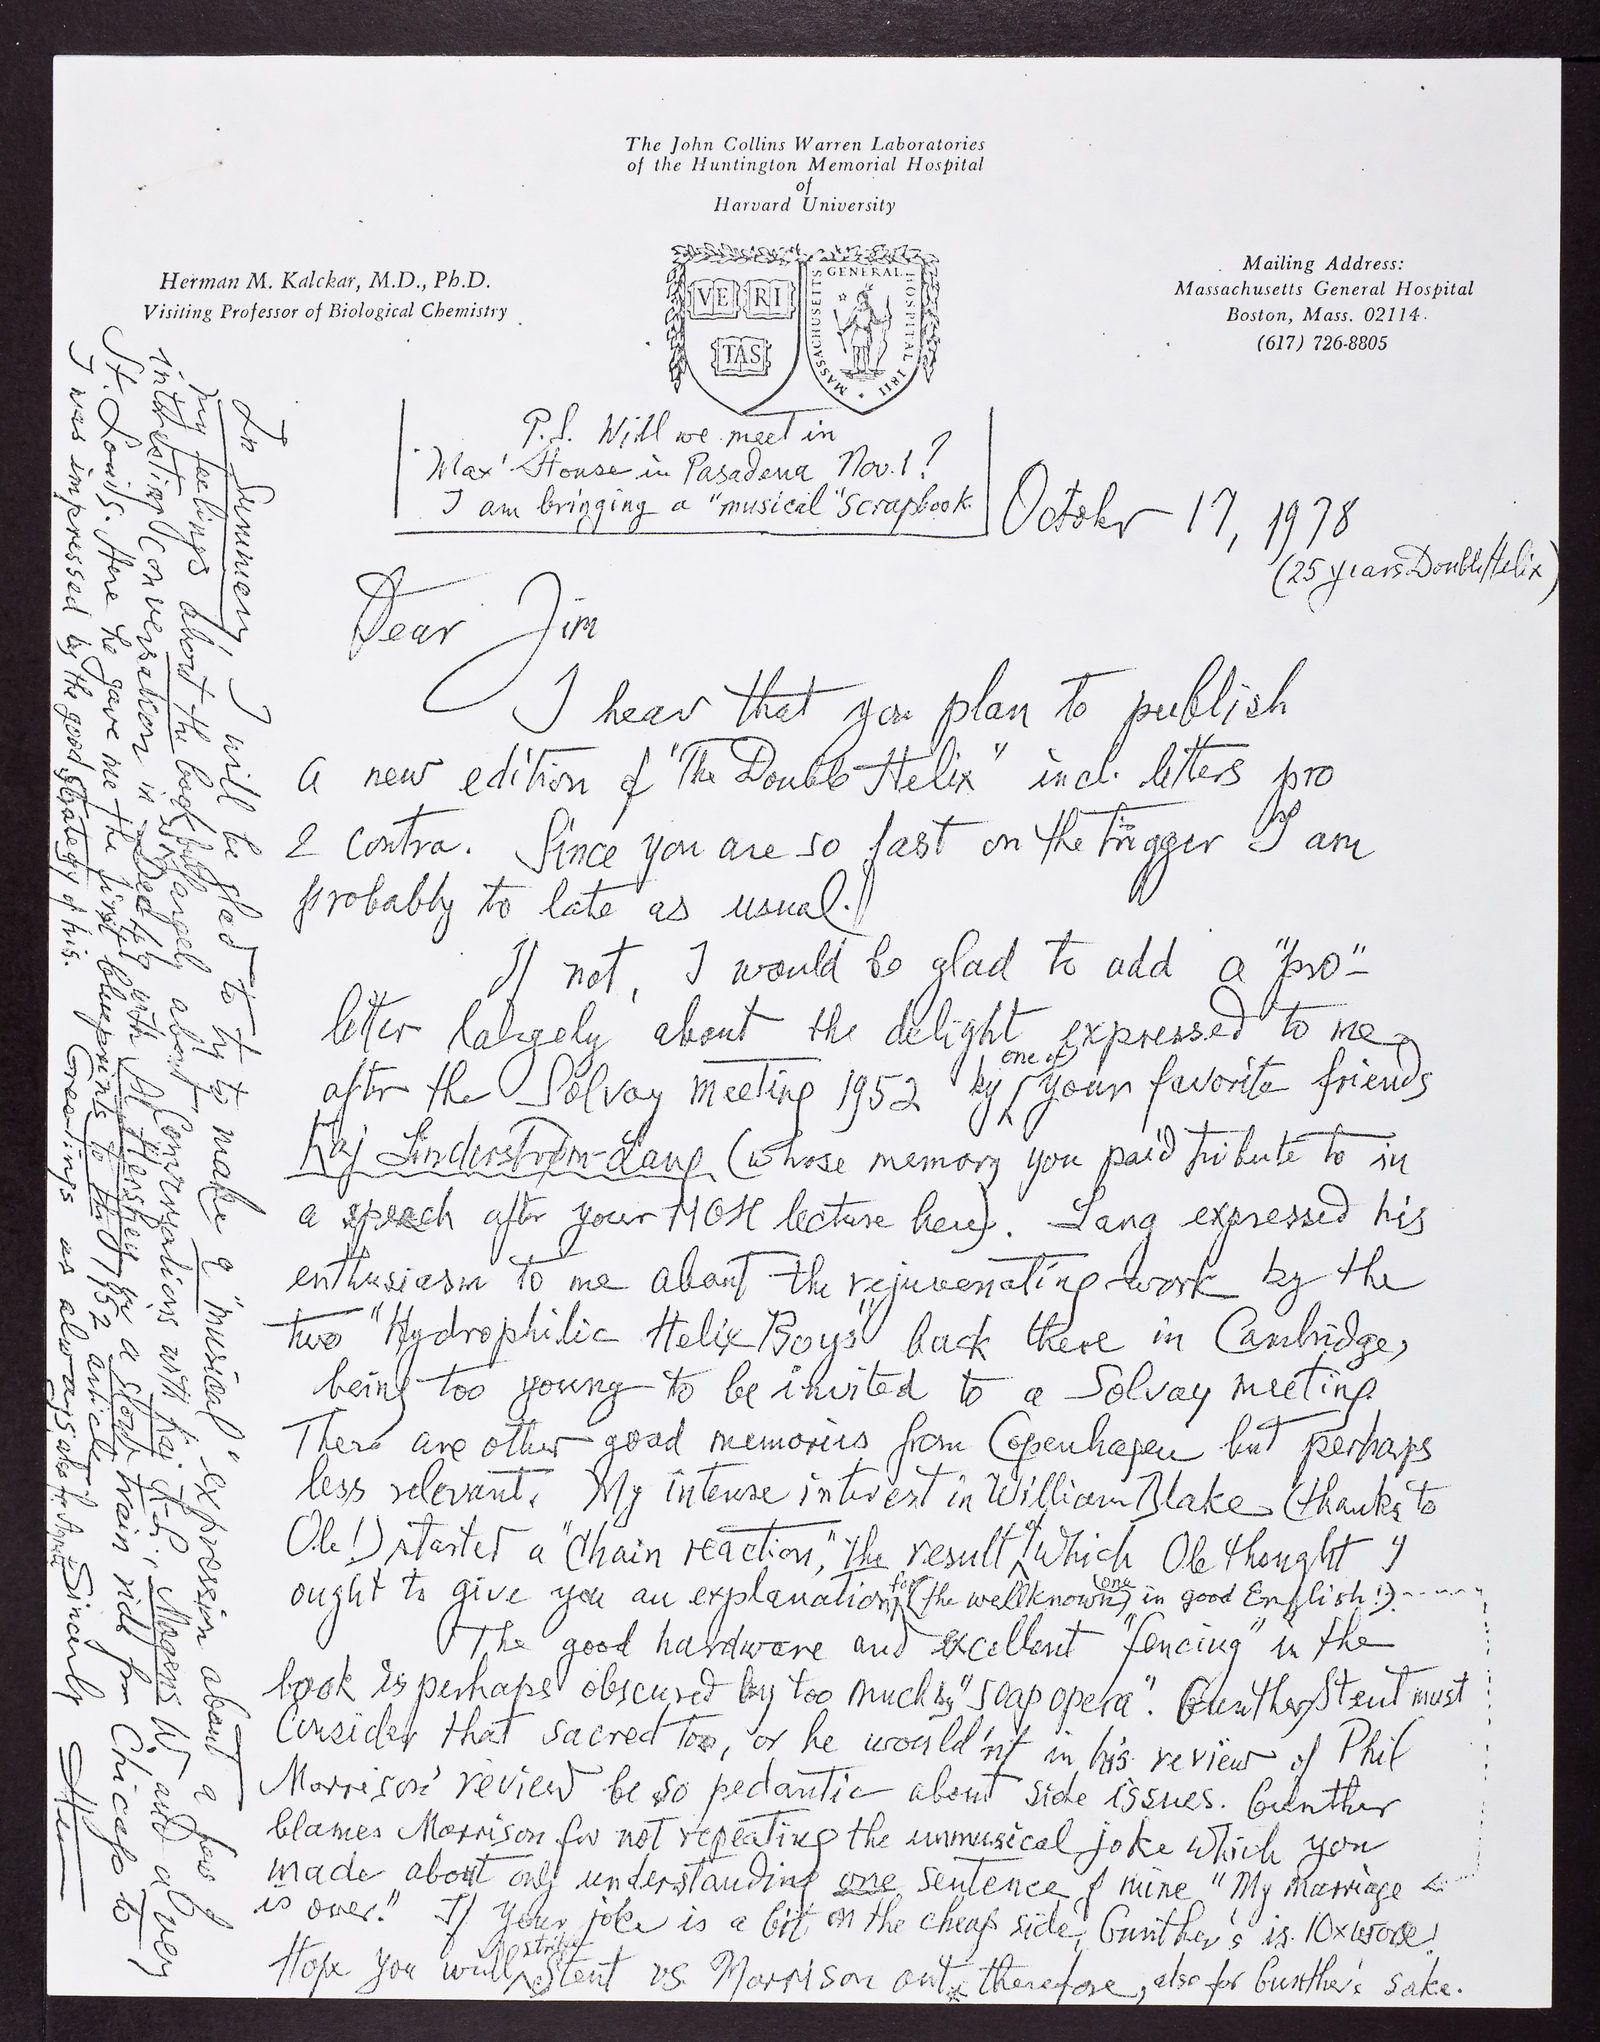 The John Collins Warren Laboratories
of the Huntington Memorial Hospital
of
Harvard University
Herman M. Kalckar, M.D., Ph.D.
Visiting Professor of Biological Chemistry
VE RI
TAS
MASSACHUSETTS GENERAL HOSPITAL 1811
Mailing Address:
Massachusetts General Hospital
Boston, Mass. 02114
(617) 726-8805
P.S. Will we meet in
Max' House in Pasadena Nov. 1?
I am bringing a "musical" scrapbook.
October 17, 1978
(25 years Double Helix)
Dear Jim
I hear that you plan to publish
a new edition of "The Double Helix" incl. letters pro
& contra. Since you are so fast on the trigger I am
probably to late as usual.
If not, I would be glad to add a "pro"-
letter largely about the delight expressed to me
after the Solvay meeting 1952 by one of your favorite friends
Kaj Linderstrøm-Lang (whose memory you paid tribute to in
a speech after your MGH lecture here). Lang expressed his
enthusiasm to me about the rejuvenating work by the
two "Hydrophilic Helix Boys" back there in Cambridge,
being too young to be invited to a Solvay meeting.
There are other good memories from Copenhagen but perhaps
less relevant. My intense interest in William Blake (thanks to
Ole!) started a "chain reaction," the result of which Ole thought I
ought to give you an explanation for (the wellknown one) in good English!)
The good hardware and excellent "fencing" in the
book is perhaps obscured by too much by "soap opera". Gunther Stent must
consider that sacred too, or he would'nt in his review of Phil
Morrison' review be so pedantic about side issues. Gunther
blames Morrison for not repeating the unmusical joke which you
made about only understanding one sentence of mine "My marriage
is over." If your joke is a bit on the cheap side, Gunther's is 10x worse!
Hope you will strike Stent vs Morrison out therefore, also for Gunther's sake.
In Summery, I will be glad to try to make a "musical" expression about a few of
my feelings about the book, but largely about Conversations with Kaj L-L., Mogens W. and a very
interesting conversation in Dec. 1952 with Al Hershey on a slow train ride from Chicago to
St. Louis. Here he gave me the first blueprints to this 1952 article.
I was impressed by the good strategy of his. Greetings as always, also for Sincerely
Herman